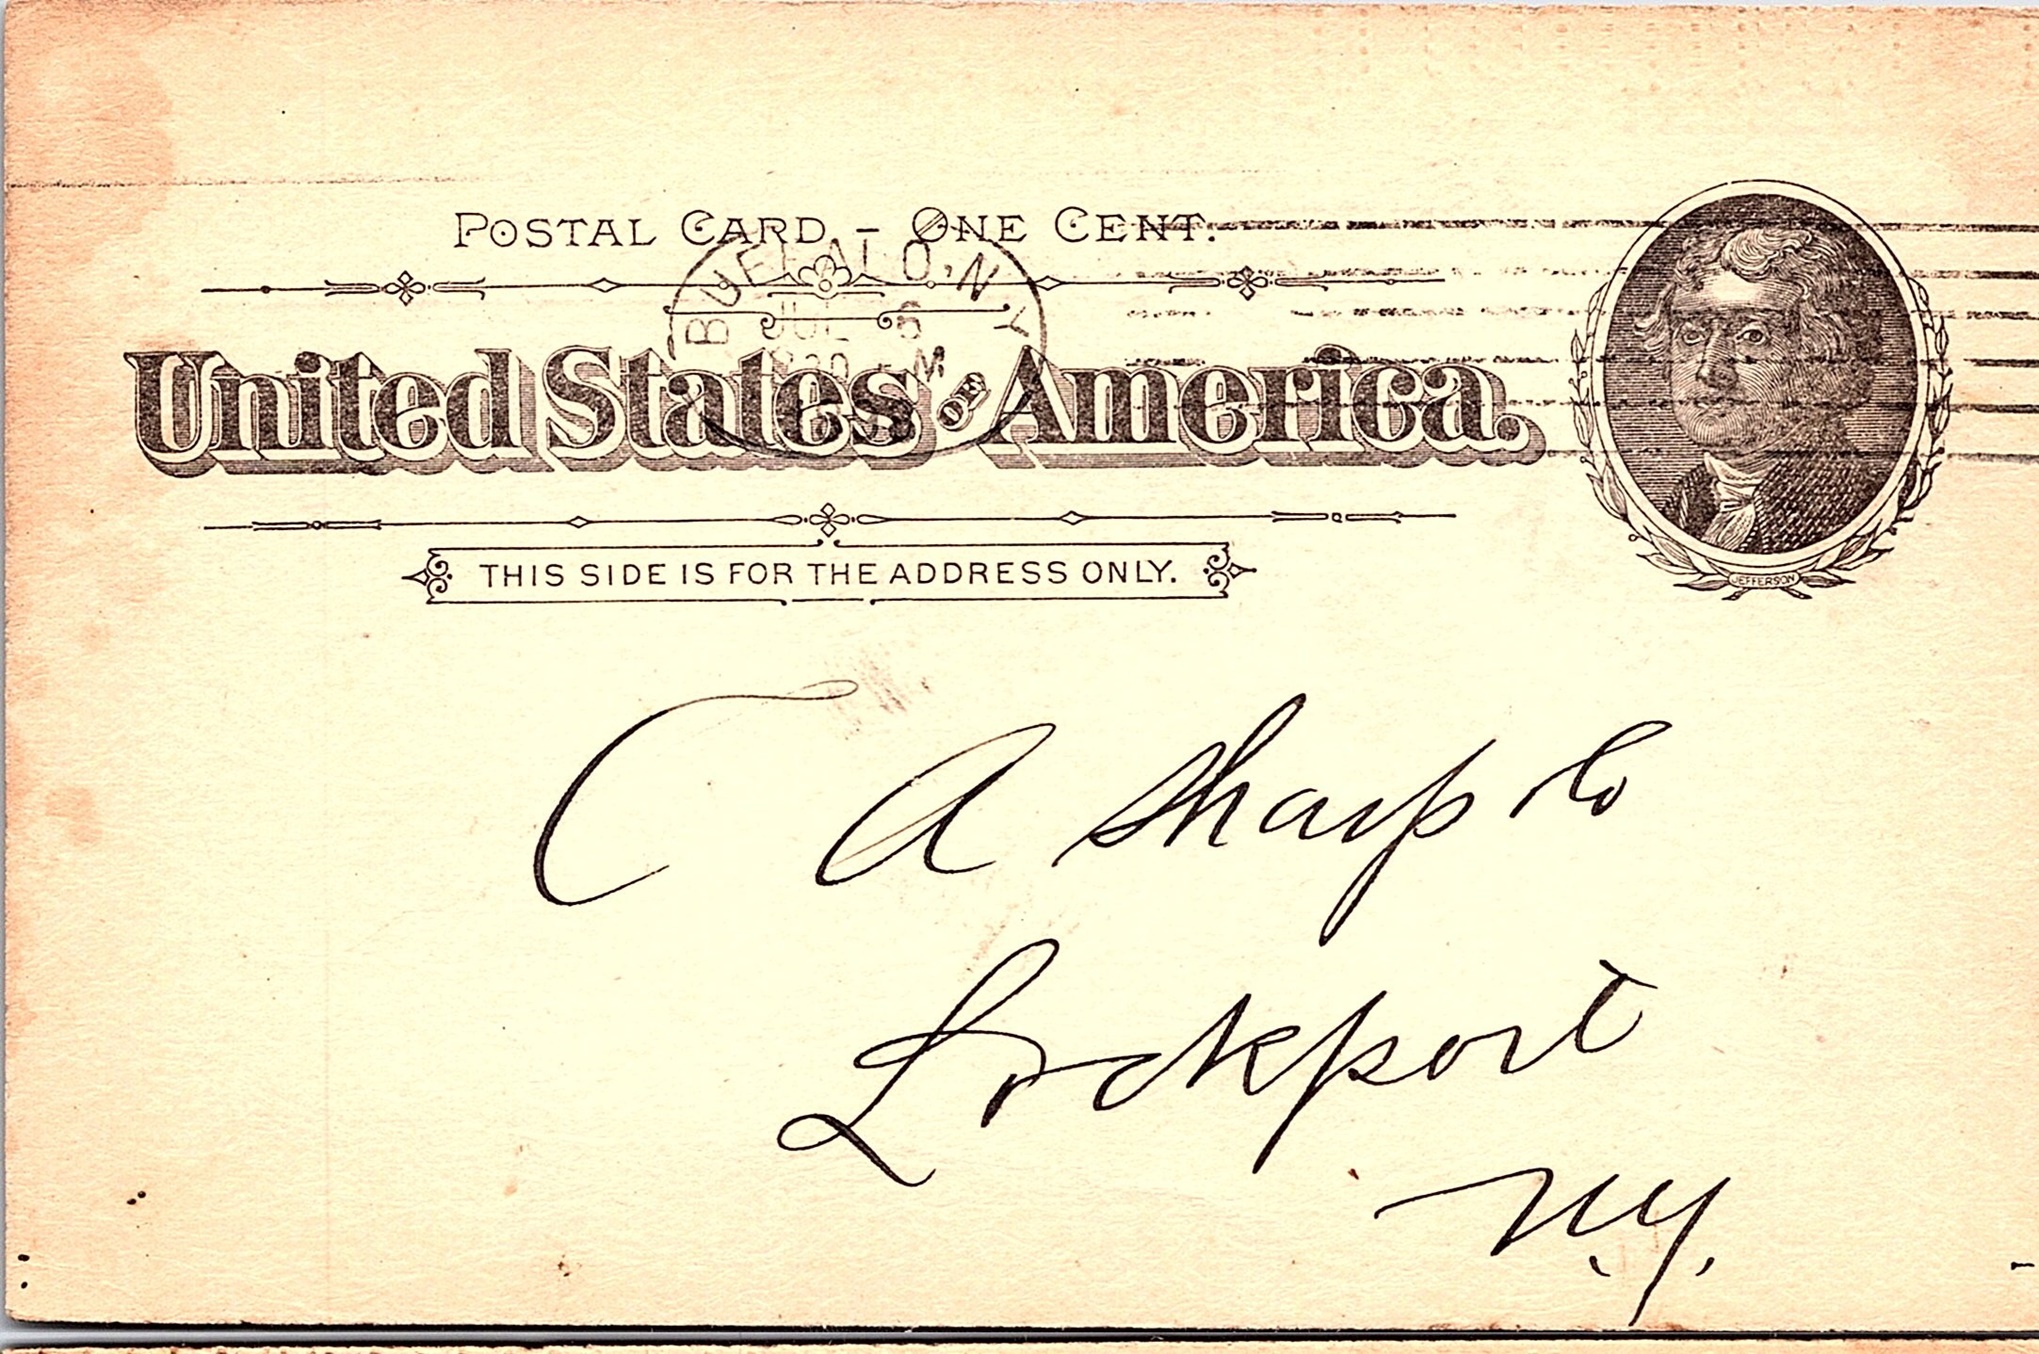 POSTAL CARD – ONE CENT.
BUFFALO, N Y
JUL 5
M
United States OF America.
JEFFERSON
THIS SIDE IS FOR THE ADDRESS ONLY.
C A Sharp Co
Lockport
N.Y.